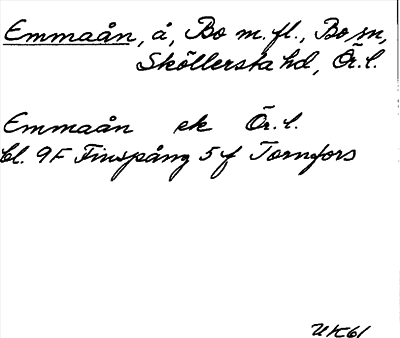 Emmaån, å, Bo m.fl., Bo sn,
Sköllersta hd, Ör.l.
Emmaån ek Ör.l.
bl. 9F Finspång 5f Tornfors
UK61